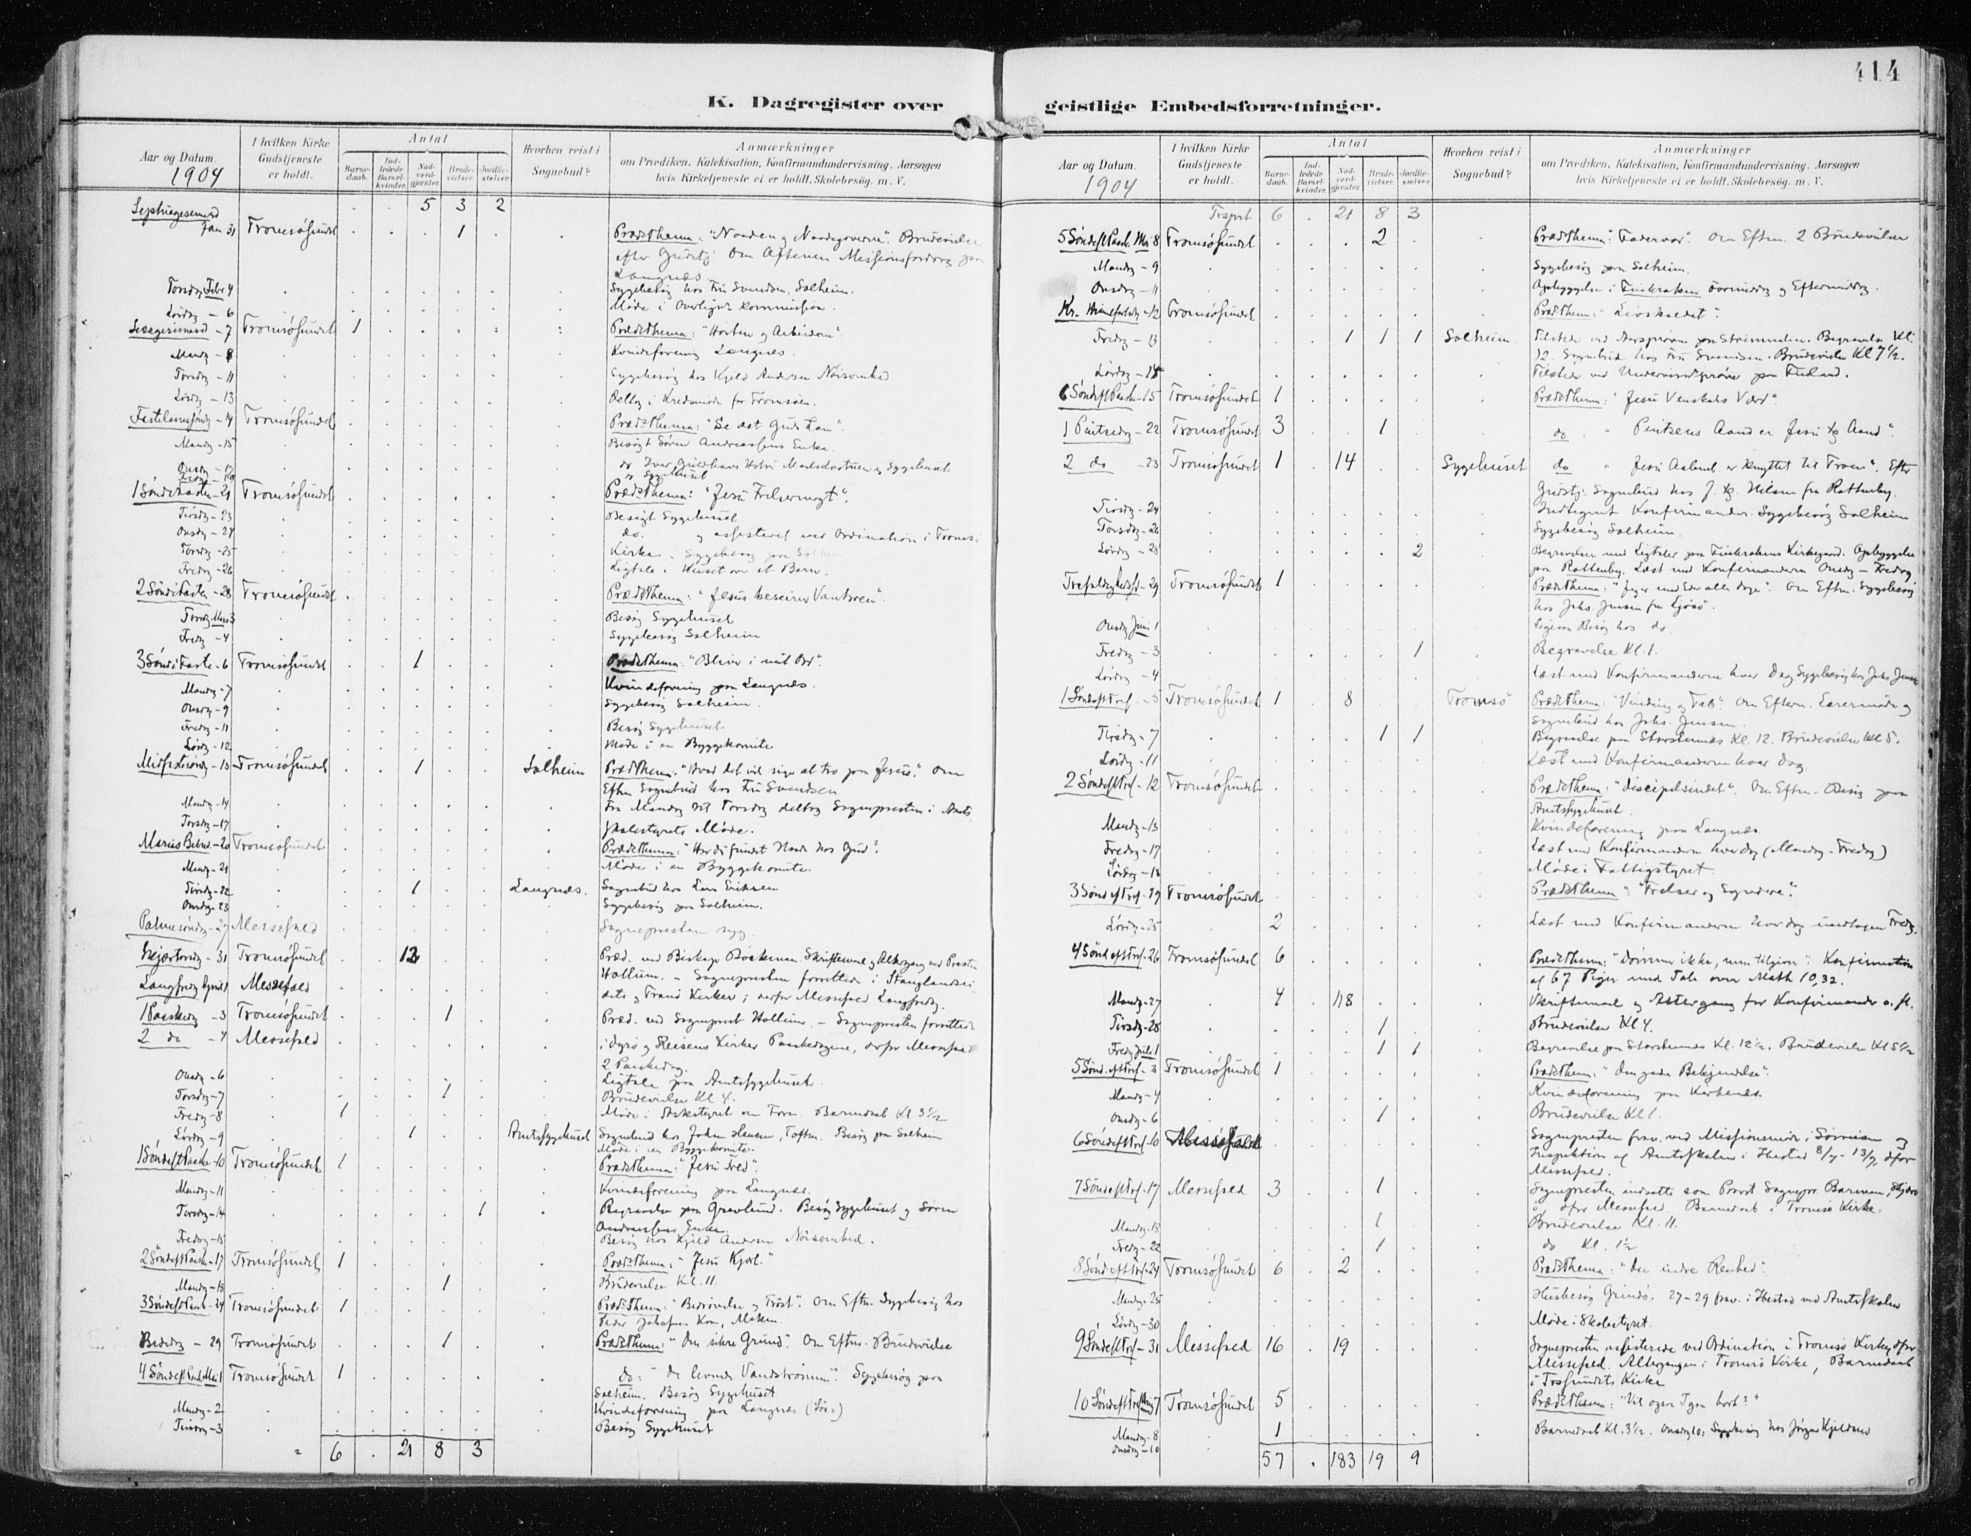 414
K. Dagregister over geistlige Embedsforretninger.
Aar og Datum. 1904
I hvilken Kirke Gudstjeneste er holdt.
Antal
Barnedaab.
Indledede Barselkvinder.
Nadverdgjæster.
Brudevielser
Jordfæstelser.
Hvorhen reist i Sognebud?
Anmærkninger
om Prædiken, Katekisation, Konfirmandundervisning, Aarsagen
hvis Kirketjeneste ei er holdt, Skolebesøg, m. V.
. . 5 3 2
Septuagesima Jan 31 Tromsøsundet 1 Præd. Thema: "Naaden og Naadegaverne". Brudevielse
efter Gudstj. Om Aftenen Missionsforedrag paa
Langnæs
Torsdag Febr 4 Sygebesøg hos Fru Svendsen, Solheim.
Lördag - 6 Møde i Overligningskommission.
Sexagesima - 7 Tromsøsundet 1 Præd. Thema: "Hvilen og Arbeidene"
Mandag - 8 Kvindeforening Langnes.
Torsdag - 11 Sygebesøg hos Kjeld Andersen Noisomhed
Lördag - 13 Deltog i Kredsmøde for Tromsøen.
Fastelavnsöndag - 14 Tromsøsundet Præd. Thema: "Se det Guds Lam".
Mandag - 15 Besøgt Søren Andreassens Enke.
1 Sönd i Fasten - 21 Tromsøsundet Præd. Thema: "Jesu Frelsermagt".
Tirsdag - 23 Besøgt Sygehuset
Onsdag - 24 do. og assisteret ved Ordination i Tromsø
Torsdag - 25 Kirke. Sygebesøg paa Solheim
Fredag - 26 Ligtale i Huset over et Barn.
2 Sönd i Fasten - 28 Tromsøsundet Præd. Thema: "Jesus beseirer Vantroen".
Torsdag Mars 3 Besøg Sygehuset
Fredag - 4 Sygebesøg Solheim
3 Sönd i Faste - 6 Tromsøsundet 1 Præd. Thema: "Bliver i mit Ord".
Mandag - 7 Kvindeforening paa Langnæs.
Onsdag - 9 Sygebesøg Solheim.
Fredag - 11 Besøg Sygehuset
Lördag - 12 Møde i en Byggekomite
Midfastesöndag - 13 Tromsøsundet 1 Solheim Præd. Thema: "Hvad det vil sige at tro paa Jesus". Om
Eftm Sognebud hos Fru Svendsen
Mandag - 14 Fra Mandag til Torsdag deltog Sognepresten i Amts-
Torsdag - 17 skolestyrets Møde.
Mariæ Bebud - 20 Tromsøsundet Præd. Thema: "Har du fundet Naade hos Gud?
Mandag - 21 Møde i en Byggekomite
Tirsdag - 22 1 Langnæs. Sognebud hos Lars Eriksen
Onsdag - 23 Sygebesøg paa Solheim.
Palmesöndag - 27 Messefald Sognepresten syg.
Skjærtorsdag - 31 Tromsøsundet 12 Præd. ved Biskop Bøckman. Skriftemaal og Altergang ved Presten
Hollum. - Sognepresten forrettede i Stanglandsei-
Langfredag April 1 Messefald dets og Tranø Kirker; derfor Messefald Langfredag.
1 Paaskedag - 3 Tromsøsundet 1 Præd. ved Sogneprest Hollum. - Sognepresten forrettede
2 do - 4 Messefald i Dyrø og Reisens Kirker Paaskedagene, derfor Messefald
2 Paaskedag.
Onsdag - 6 Ligtale paa Amtssygehuset.
Torsdag - 7 1 Brudevielse Kl 4.
Fredag - 8 1 Møde i Asylstyret om Form. Barnedaab Kl 3 1/2
Lördag - 9 1 Amtssygehuset Sognebud hos Johan Hansen, Toften. Besøg paa Solheim
Møde i en Byggekomite.
1 Sönd eft Paaske - 10 Tromsøsundet 1 Præd. Thema: "Jesu Fred".
Mandag - 11 Kvindeforening paa Langnæs.
Torsdag - 14 1 Begravelse paa Gravlund. Besøg Sygehuset og Søren
Andreassens Enke
Fredag - 15 Besøg hos Kjeld Andersen Noisomhed.
2 Sönd eft Paaske - 17 Tromsøsundet 1 Præd. Thema: "Jesu Kjærl."
Mandag - 18 1 Brudevielse Kl. 11.
3 Sönd eft Paask - 24 Tromsøsundet 1 Præd. Thema: "Bedrøvelse og Trøst". Om Eftm. Sygebesøg hos
Bededag - 29 Tromsøsundet 1 Præd. Thema: "Den sikre Grund". Om Eftm. Brudevielse
4 Sönd eft Paask Mai 1 Tromsøsundet 1 do: "De levende Vandstrømme". Sygebesøg paa
Solheim. Besøg Sygehuset
Mandag - 2 Kvindeforening paa Langnæs
Tirsdag - 3 Besøg Sygehuset
6 . 21 8 3
Aar og Datum. 1904
I hvilken Kirke Gudstjeneste er holdt.
Antal
Barnedaab.
Indledede Barselkvinder.
Nadverdgjæster.
Brudevielser
Jordfæstelser.
Hvorhen reist i Sognebud?
Anmærkninger
om Prædiken, Katekisation, Konfirmandundervisning, Aarsagen
hvis Kirketjeneste ei er holdt, Skolebesøg, m. V.
Trsprt 6 . 21 8 3
5 Sönd eft Paask Mai 8 Tromsøsundet 2 Præd. Thema: "Fadervor". Om Eftm. 2 Brudevielser
Mandag - 9 Sygebesøg paa Solheim.
Onsdag - 11 Opbyggelse i Finkroken Formiddag og Eftermiddag.
Kr. Himmelfartsdag - 12 Tromsøsundet Præd. Thema:
Fredag - 13 1 1 1 Solheim. Tilstede ved Aarsprøven paa Strømmen. Begravelse Kl.
12. Sognebud hos Fru Svendsen. Brudevielse Kl 7 1/2.
Lördag - 14 Tilstede ved Underviisnprøve paa
6 Sönd eft Paask - 15 Tromsøsundet 1 Præd. Thema: "Jesu Venskabs Værd".
1 Pintsedag - 22 Tromsøsundet 3 1 do " Pintsens Aand er Jesu Kr Aand".
2 do - 23 Tromsøsundet 1 14 Sygehuset do " Efter
Gudstj. Sognebud hos J. Kr. Nielsen fra Rottenby.
Tirsdag - 24 Indtegnet Konfirmander. Sygebesøg Solheim
Torsdag - 26 Sygebesøg Solheim.
Lördag - 28 2 Begravelser med Ligtaler paa Finkrokens Kirkegaard. Opbyggelse
paa Rottenby. Læst med Konfirmanderne Onsdag - Fredag.
Trefoldighedsfest - 29 Tromsøsundet 1 Præd. Thema: "Jeg er med Eder alle Dage". Om Eftm. Sygebesøg
hos Johs. Jensen fra
Onsdag Juni 1 Ligesom Besøg hos do
Fredag - 3 1 Begravelse Kl. 1.
Lördag - 4 Læst med Konfirmanderne hver Dag. Sygebesøg hos Johs Jensen
1 Sönd eft Tref - 5 Tromsøsundet 1 8 Tromsø Præd. Thema: "Vinding og Tab". Om Eftm. Lærermøde og
Sognebud hos Johs. Jensen.
Tirsdag - 7 1 1 Begravelse paa Storstennæs Kl. 12. Brudevielse Kl 5.
Lördag - 11 Læst med Konfirmanderne hver Dag.
2 Sönd eft Tref - 12 Tromsøsundet Præd. Thema: "Discipelsindet". Om Eftm. Besøg paa
Amtssygehuset.
Mandag - 13 Kvindeforening paa Langnæs.
Fredag - 17 Læst med Konfirmanderne hver Dag (Mandag - Fredag)
Lördag - 18 Møde i Fattigstyret.
3 Sönd eft Tref - 19 Tromsøsundet Præd. Thema: "Frelser og Syndere".
Lördag - 25 2 Læst med Konfirmanderne hver Dag undtagen Fredag.
4 Sönd eft Tref - 26 Tromsøsundet 6 Præd. Thema: "Dømmer ikke, men tilgiver". Konfirmation
af 67 Piger med Tale over Math 10,32.
Mandag - 27 4 118 Skriftemaal og Altergang for Konfirmander o. fl.
Tirsdag - 28 1 Brudevielse Kl 4.
Fredag Juli 1 1 1 Begravelse paa Storstennes Kl. 12 1/2. Brudevielse Kl 5 1/2
5 Sönd. eft Tref - 3 Tromsøsundet 1 Præd. Them: "Den gode Bekjendelse".
Mandag - 4 Kvindeforening paa
Onsdag - 6 1 Brudevielse Kl 1.
6 Sönd eft Tref - 10 Messefald Sognepresten frav. ved Missionsmøde i Sørreisen og
Inspektion af Amtsskolen i Ibestad 8/7 - 13/7, dfor
Messefald.
7 Sönd eft Tref - 17 Messefald 3 1 Sognepresten indsatte som Provst Sognepr. Barman,
dfor Messefald. Barnedaab i Tromsø Kirke.
Mandag - 18 1 Brudevielse Kl. 11.
Fredag - 22 1 do Kl. 1 1/2
8 Sönd eft Tref - 24 Tromsøsundet 6 2 Præd. Thema: "Den indre Renhed".
Mandag - 25 Husbesøg Grindø. 27-29 frav. i Ibestad ved Amtsskolen
Lördag - 30 Møde i Skolestyret.
9 Sönd eft Tref - 31 Messefald 16 19 Sognepresten assisterede ved Ordination i Tromsø Kirke, dfor
Messefald. Altergangen i Tromsø Kirke, Barnedaab
i Trosundets Kirke
10 Sönd eft Tref Aug 7 Tromsøsundet 5 Præd. Thema:
Mandag - 8 1 Barnedaab Kl. 3 1/2. Onsdag 10: Sygebesøg hos Jørgen Kjeldsen
Onsdag - 10
57 . 183 19 9